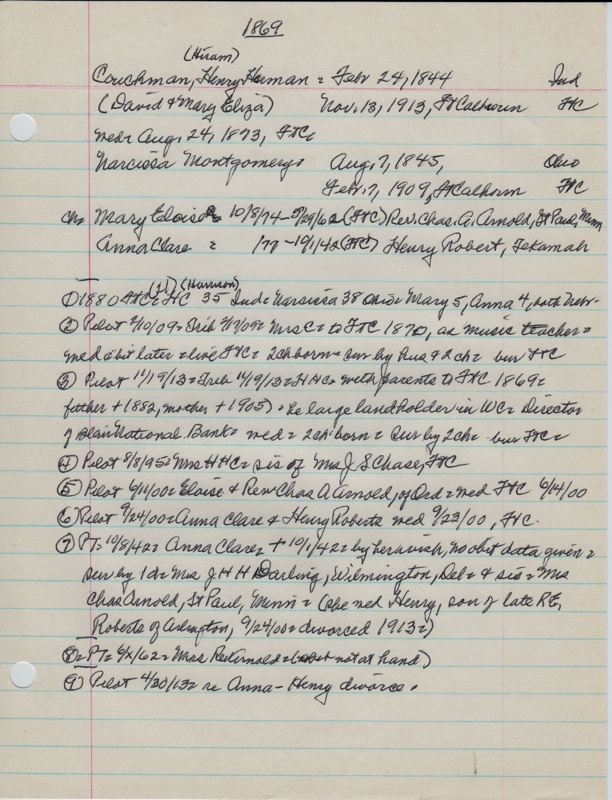 1869
(Hiram)
Couchman, Henry Human = Febr 24, 1844 Ind
(David & Mary Eliza) Nov. 13, 1913, FtCalhoun FC
med= Aug. 24, 1873, FtC
Narcissa Montgomery= Aug. 7, 1845, Ohio
Feb. 7, 1909, FtCalhoun FtC
ch= Mary Eloise = 10/8/74-5/29/62 (FtC) Rev. Chas. A. Arnold, St Paul, Minn
Anna Clare = /77-10/1/42 (FtC) Henry Robert, Tekamah
(Harrison)
① 1880 FtC= HC 35 Ind= Narsissa 38 Ohio= Mary 5, Anna 4, both Nebr-
② Pilot 2/10/09= Trib 2/17/09= Mrs C= to FtC 1870, as music teacher=
med a bit later= live FtC= 2ch born= sur by hus & 2ch= bur FtC
③ Pilot 11/19/13= Trib 11/19/13= HHC= with parents to FtC 1869=
father + 1882, mother + 1905) = he large landholder in WC= Director
of Blair National Bank= med= 2ch born= sur by 2ch= bur FtC=
④ Pilot 8/8/95= Mrs HHC= sis of Mrs J S Chase, FtC
⑤ Pilot 6/11/00= Eloise & Rev Chas A Arnold, of Ord= med FtC 6/14/00
⑥ Pilot 9/24/00= Anna Clare & Henry Roberts med 9/23/00, FtC.
⑦ PT= 10/8/42= Anna Clare= + 10/1/42= by her wish, no obit data given=
sur by 1d= Mrs J H H Darling, Wilmington, Del= & sis= Mrs
Chas Arnold, St Paul, Minn= (she med Henry, son of late R.E.
Roberts of Arlington, 9/24/00= divorced 1913=)
⑧= PT= 6/x/62= Mrs Rev Arnold= (obit not at hand)
⑨ Pilot 4/30/13= re Anna-Henry divorce.